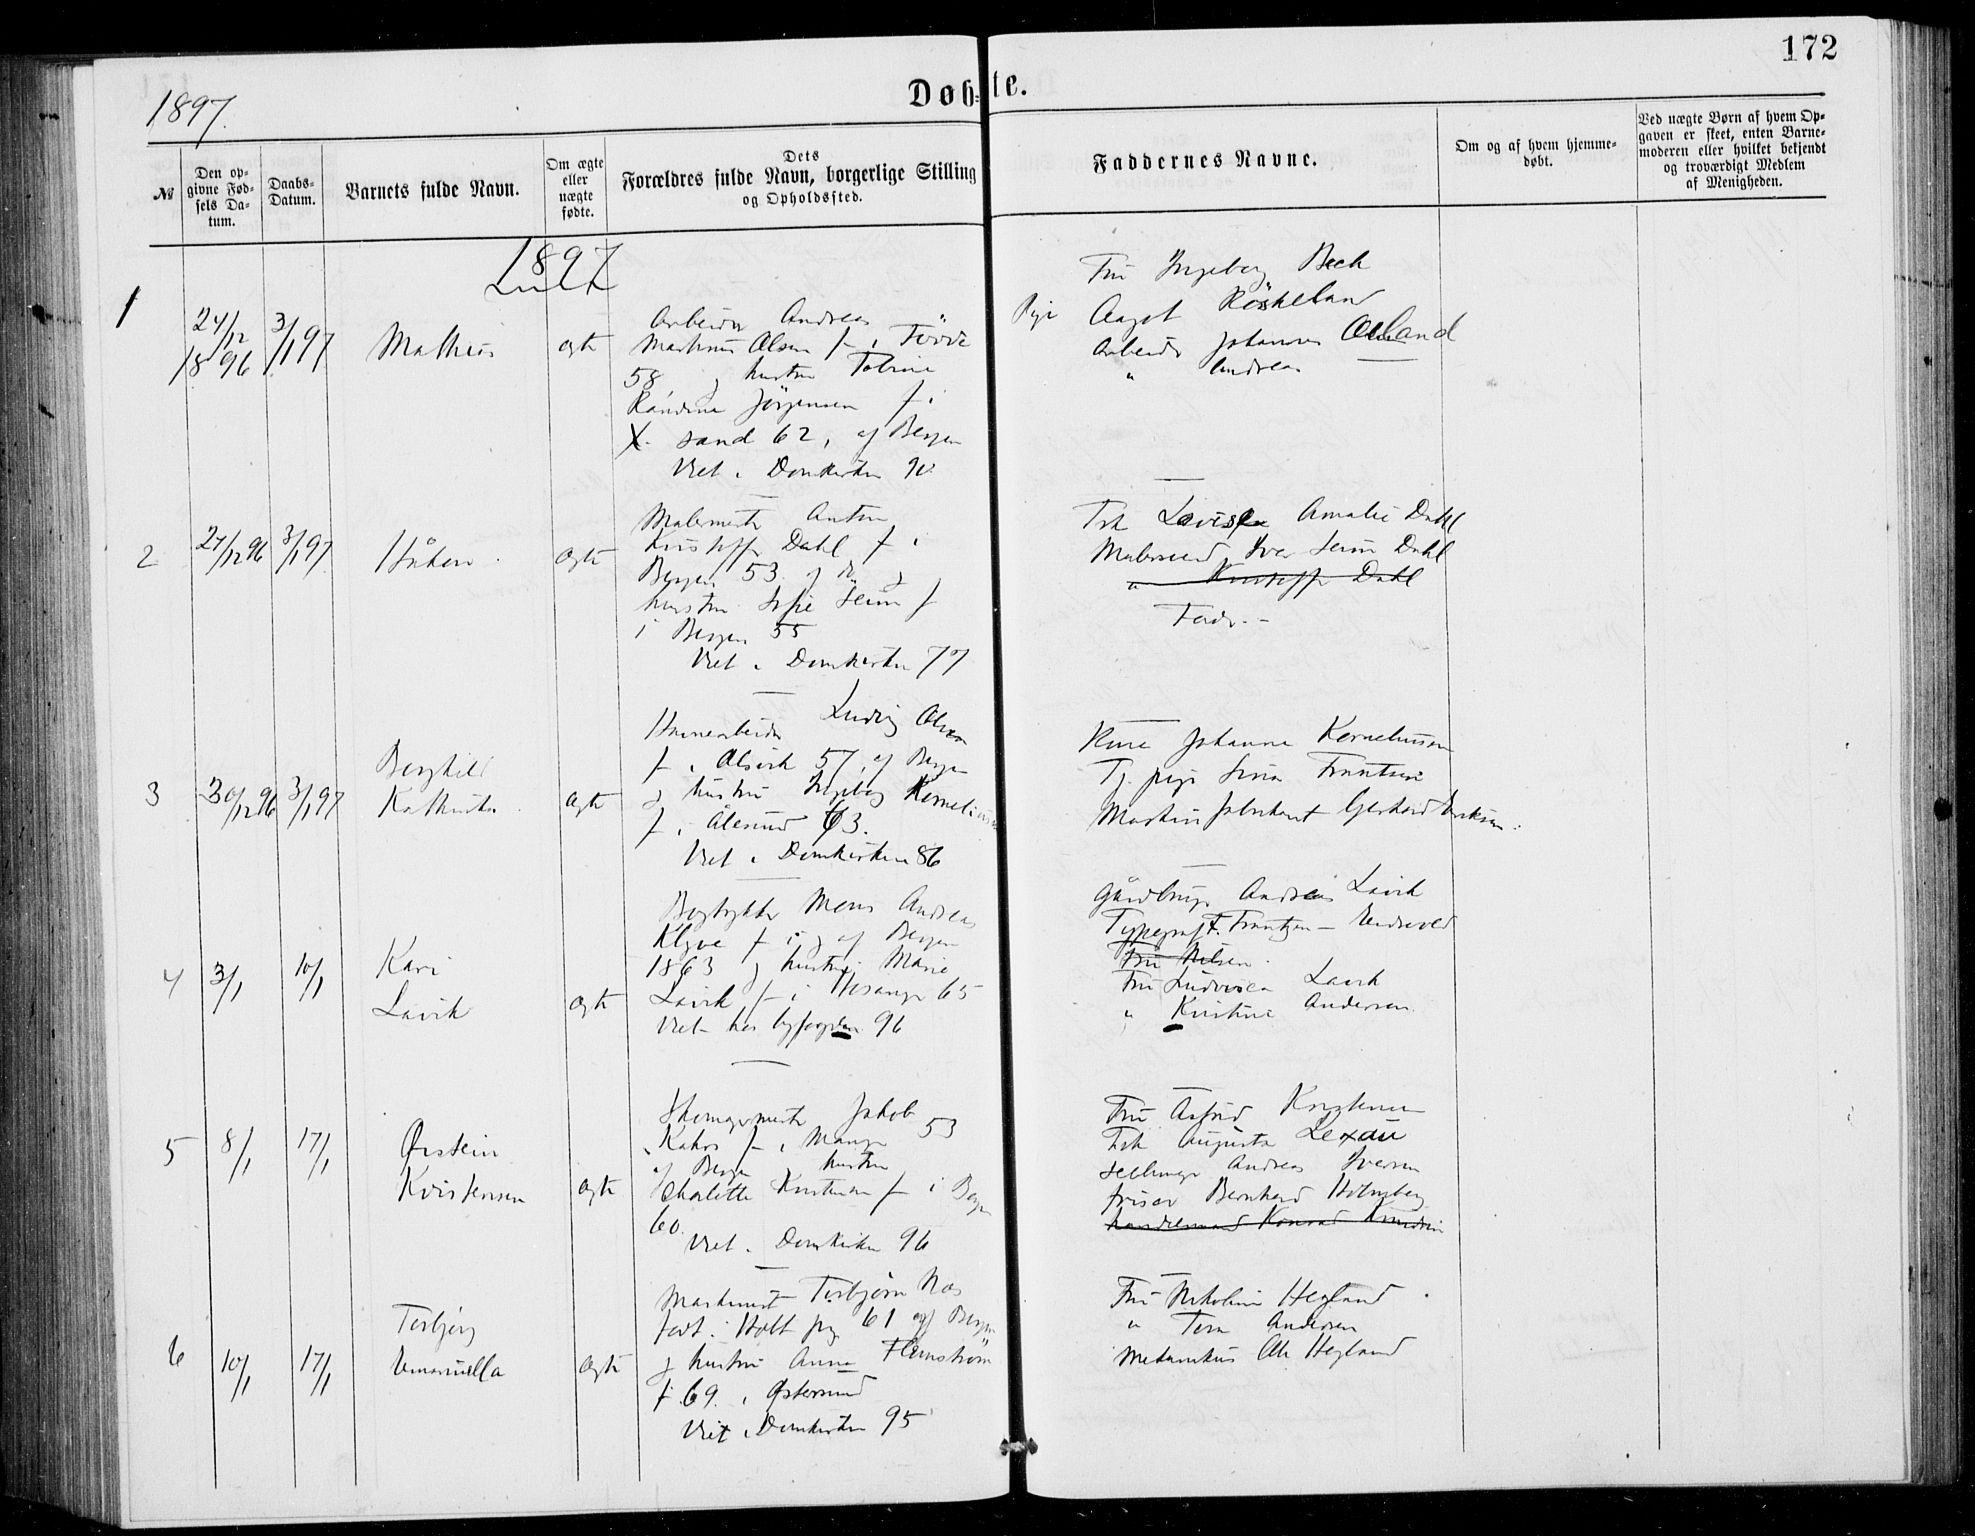 172
1897.
Døbte.
№
Den opgivne Fødsels Datum.
Daabs-Datum.
Barnets fulde Navn.
Om ægte eller uægte fødte.
Dets Forældres fulde Navn, borgerlige Stilling og Opholdssted.
Faddernes Navne.
Om og af hvem hjemmedøbt.
Ved uægte Børn af hvem Opgaven er skeet, enten Barnemoderen eller hvilket bekjendt og troværdigt Medlem af Menigheden.
1897
1
24/12
1896
3/1 97
Mathias
ægte
Arbeider Andreas
Martinus Olsen f. i Förde
58 og hustru Toline
Jörgensen f. i
X.sand 62, af Bergen
Viet i Domkirken 90
Fru Ingeborg Beck
Pige Aagot Röskeland
Arbeider Johannes
" Andreas
2
27/12 96
3/1 97
Håkon
ægte
Malermester Anton
Kristoffer Dahl f. i
Bergen 53 og
hustru Sofie Seim f
i Bergen 55
Viet i Domkirken 77
Frk Lovise Amalie Dahl
Malersvend Iver Seim Dahl
" Kristoffer Dahl
Fader.-
3
30/12 96
3/1 97
Borghild
Kathinka
ægte
Ludvig Olsen
f. i Alvik 57, af Bergen
og hustru Ingeborg Kornelius
f. i Ålesund 63.
Viet i Domkirken 86
Kone Johanna Korneliussen
Tj. pige Frantsen
Martin Gerhard Eriksen.
4
3/1
10/1
Kari
Lavik
ægte
Bogtrykker Mons Andreas
Klyve f. i og af Bergen
1863 og hustru Marie
Lavik f. i Hosanger 65
Viet hos byfogden 96
Gårdbruger Andreas Lavik
Typograf F. Frantzen -
Fru Nilsen.
Fru Ludovica Lavik
" Kristine Andersen
5
8/1
17/1
Øistein
Kristensen
ægte
Skomagermester Jakob
Kahrs f. i Manger 53
af Bergen og hustru
Charlotte Kristensen f. i Bergen
60.
Viet i Domkirken 96
Fru Astrid Kristensen
Frk Augusta Lexau
Andreas Iversen
frisør Bernhard Holmberg
handlemand Konrad Knudsen
6
10/1
17/1
Torbjørg
Emanuella
ægte
Maskinist Torbjørn Næs
født i Holt prg 61 af Bergen
og hustru Anna Flemström
f. 69. i Østersund
Viet i Domkirken 95
Fru Nikoline Hegland
" Tora Andersen
Mekanikus Ole Hegland